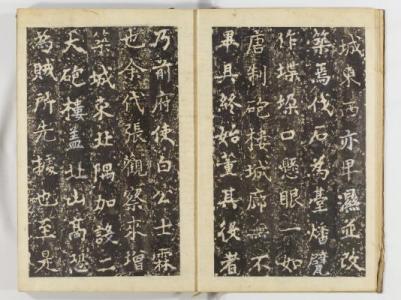 城東西亦卑濕並改
築焉伐石為臺燔甓
作堞垜口懸眼一如
唐制砲樓城廊無不
畢具終始董其役者
乃前府使白公士霖
也余代張觀察來增
築城東北隅加設二
大砲樓蓋北山高恐
為賊所先據也至是